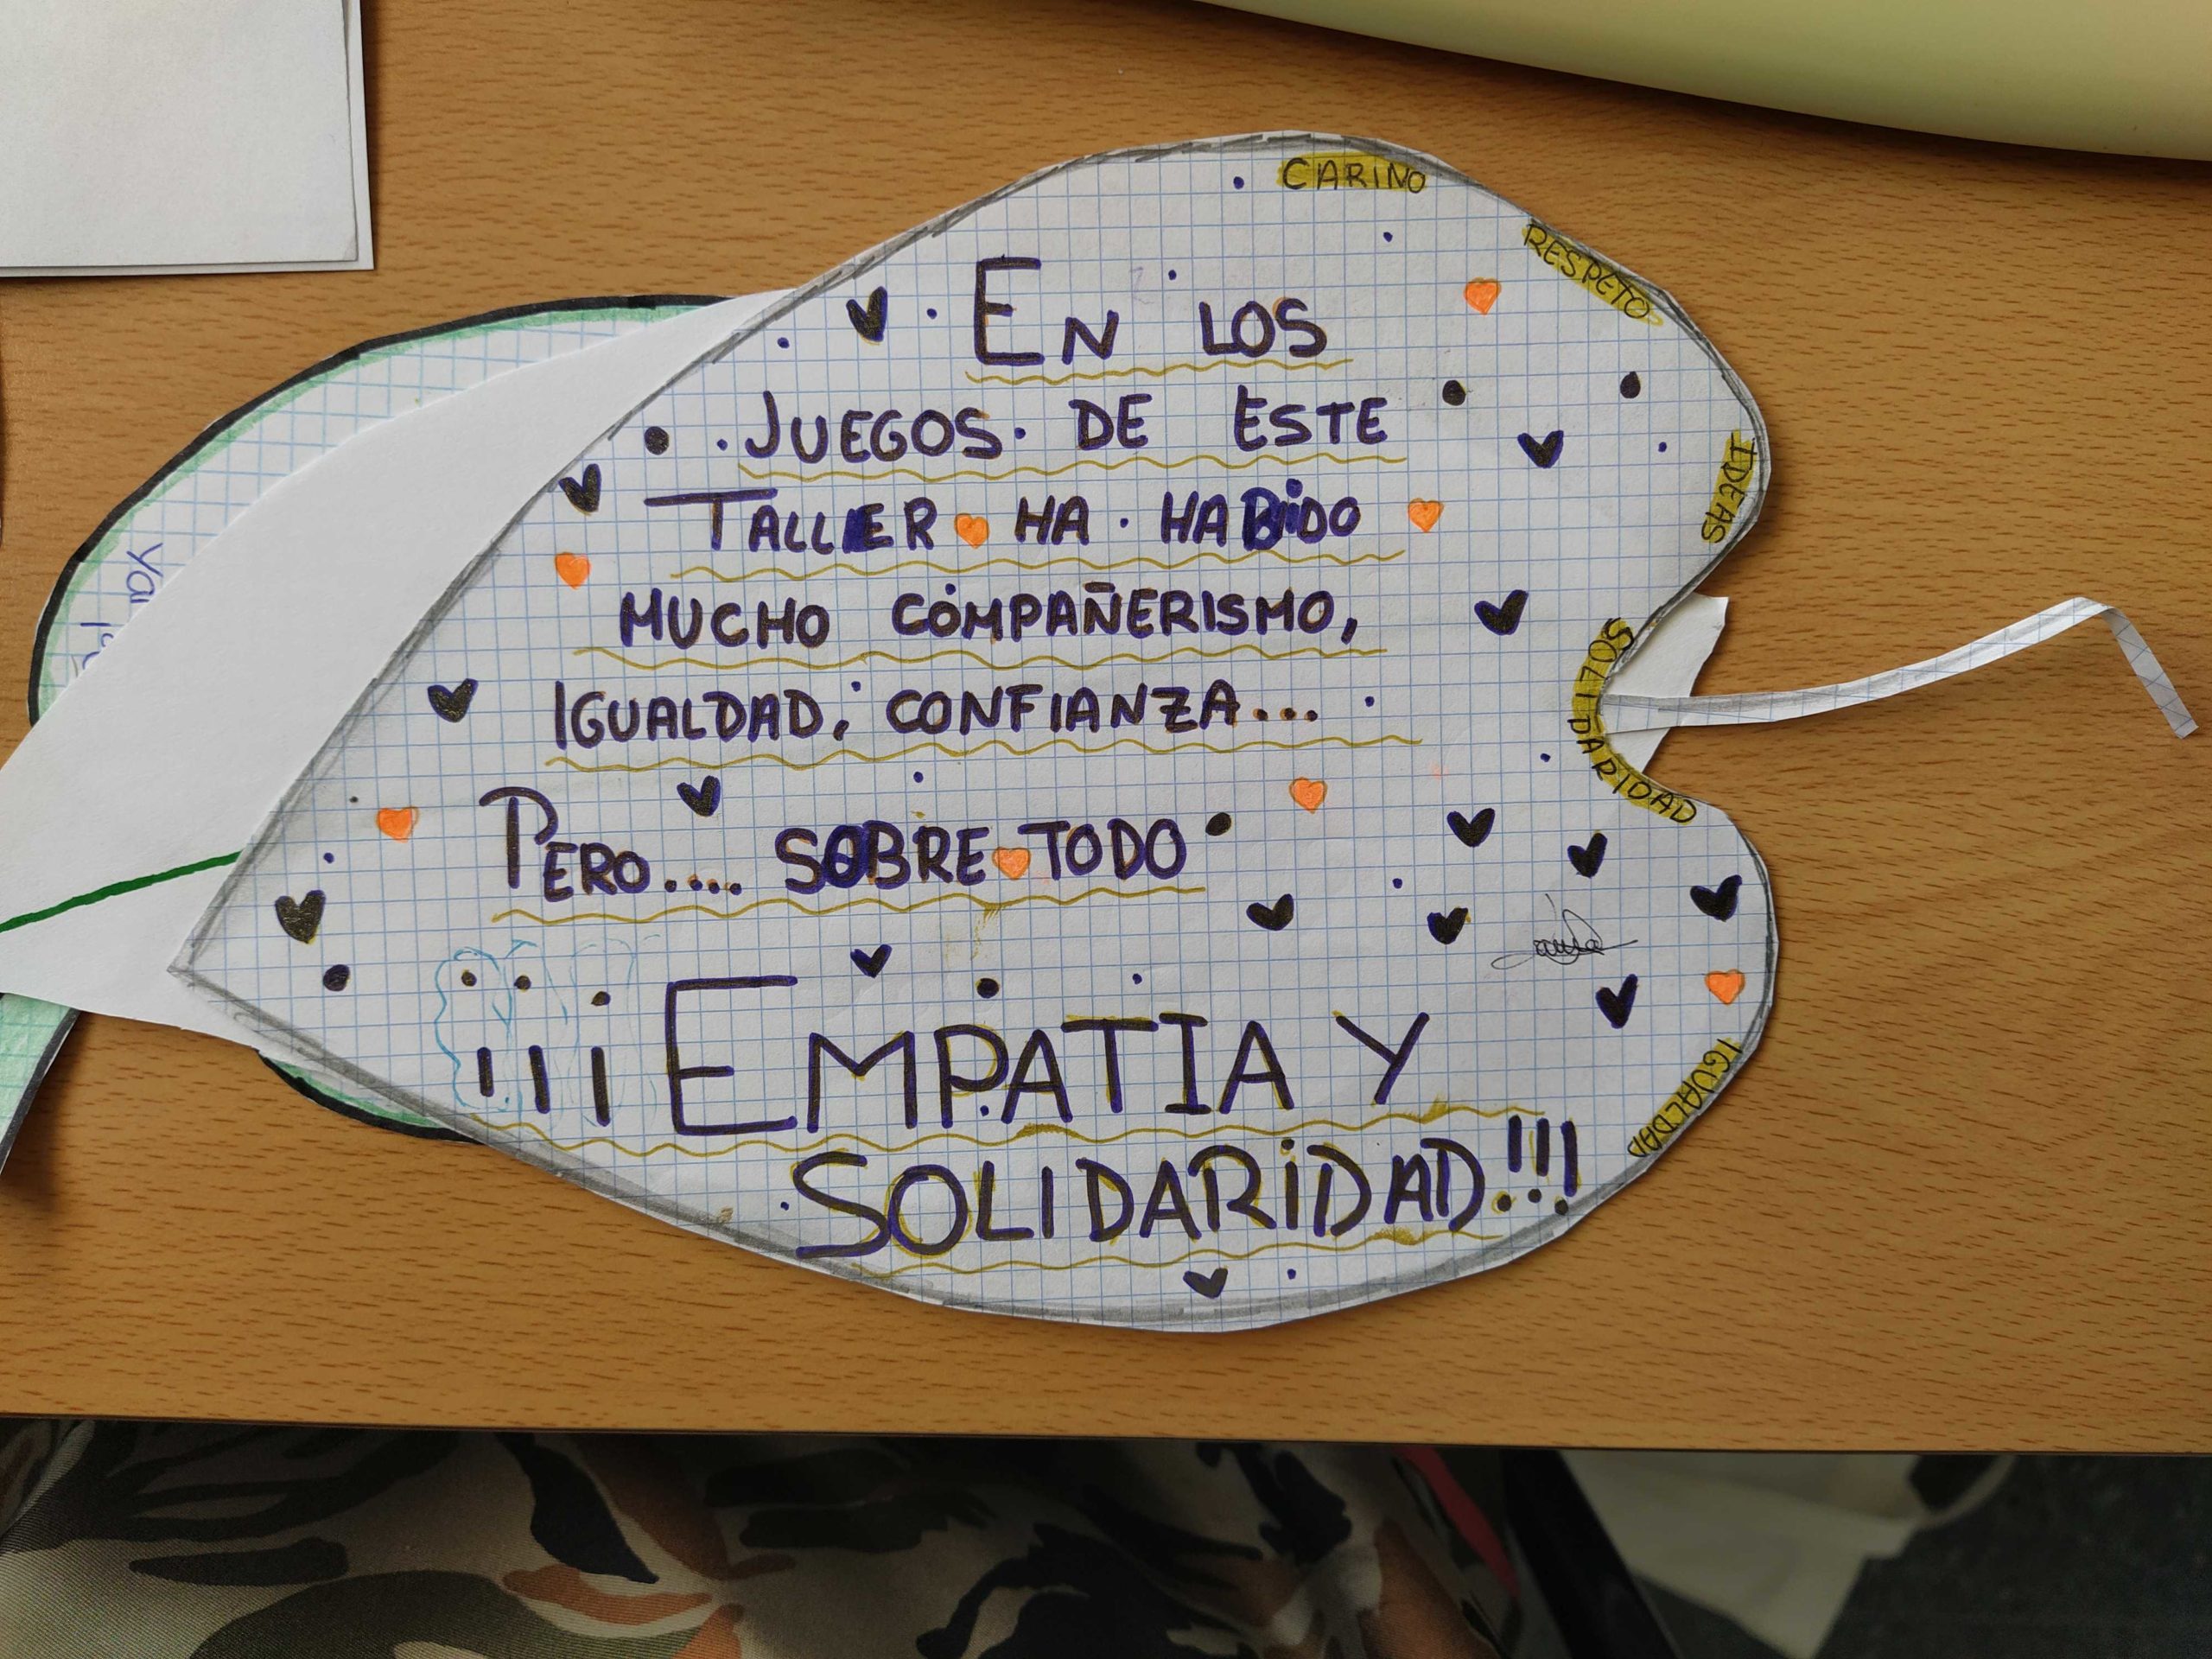 CARIÑO
RESPETO
IDEAS
SOLIDARIDAD
IGUALDAD
EN LOS
JUEGOS DE ESTE
TALLER HA HABIDO
MUCHO COMPAÑERISMO,
IGUALDAD, CONFIANZA...
PERO.... SOBRE TODO
¡¡¡EMPATIA Y
SOLIDARIDAD!!!